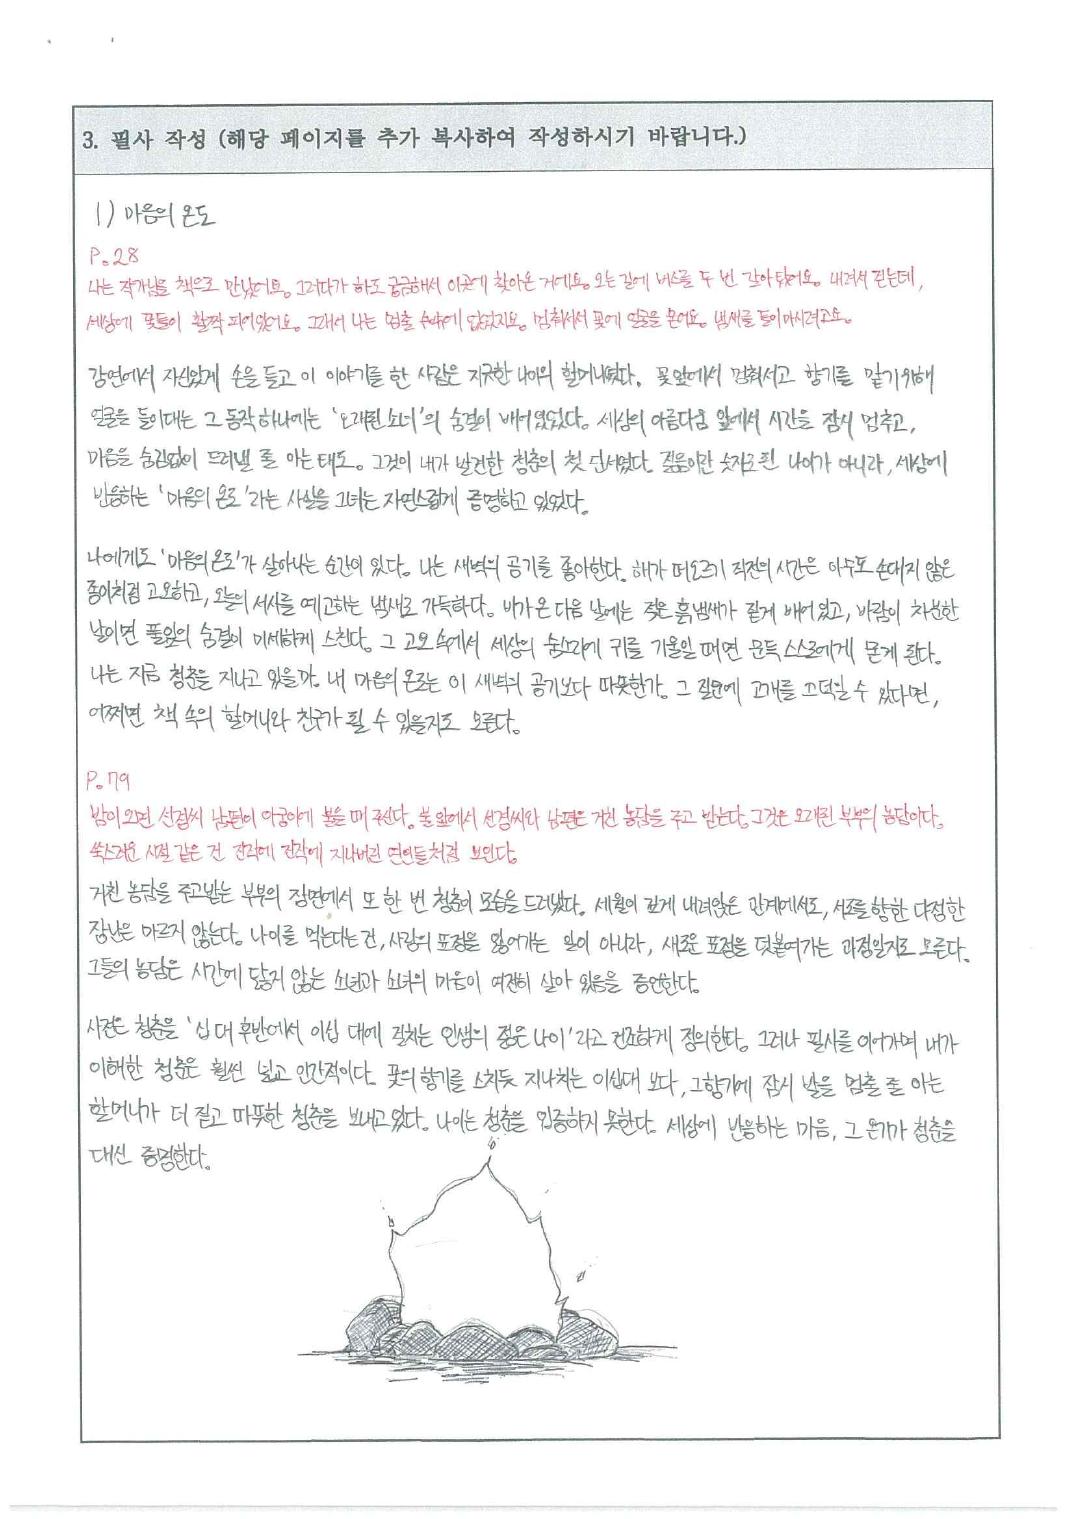 3. 필사 작성 (해당 페이지를 추가 복사하여 작성하시기 바랍니다.)
1) 마음의 온도
P.28
나는 작가님을 책으로 만났어요. 그러다가 하도 궁금해서 이곳에 찾아온 거에요. 오는 길에 버스를 두 번 갈아탔어요. 내려서 걷는데,
세상에 꽃들이 활짝 피어있어요. 그래서 나는 멈출 수밖에 없었지요. 멈춰서서 꽃에 얼굴을 묻어요. 냄새를 들이마시려고요.
강연에서 자신있게 손을 들고 이 이야기를 한 사람은 지긋한 나이의 할머니였다. 꽃 앞에서 멈춰서고 향기를 맡기위해
얼굴을 들이대는 그 동작 하나에는 '오래된 소녀'의 숨결이 배어있었다. 세상의 아름다움 앞에서 시간을 잠시 멈추고,
마음을 숨김없이 드러낼 줄 아는 태도. 그것이 내가 발견한 청춘의 첫 단서였다. 젊음이란 숫자로 된 나이가 아니라, 세상에
반응하는 '마음의 온도'라는 사실을 그녀는 자연스럽게 증명하고 있었다.
나에게도 '마음의 온도'가 살아나는 순간이 있다. 나는 새벽의 공기를 좋아한다. 해가 떠오르기 직전의 시간은 아무도 손대지 않은
종이처럼 고요하고, 오늘의 서사를 예고하는 냄새로 가득하다. 비가 온 다음 날에는 젖은 흙냄새가 짙게 배어있고, 바람이 차분한
날이면 풀잎의 숨결이 미세하게 스친다. 그 고요 속에서 세상의 숨소리에 귀를 기울일 때면 문득 스스로에게 묻게 된다.
나는 지금 청춘을 지나고 있을까. 내 마음의 온도는 이 새벽의 공기보다 따뜻한가. 그 질문에 고개를 끄덕일 수 있다면,
어쩌면 책 속의 할머니와 친구가 될 수 있을지도 모른다.
P.79
밤이 오면 선겸씨 남편이 아궁이에 불을 때 주신다. 불 앞에서 선겸씨와 남편은 거친 농담을 주고 받는다. 그것은 오래된 부부의 농담이다.
쑥스러운 시절 같은 건 진작에 진작에 지나버린 연인들처럼 보인다.
거친 농담을 주고받는 부부의 장면에서 또 한 번 청춘이 모습을 드러냈다. 세월이 깊게 내려앉은 관계에서도, 서로를 향한 다정한
장난은 마르지 않는다. 나이를 먹는다는 건, 사랑의 표정을 잃어가는 일이 아니라, 새로운 표정을 덧붙여가는 과정일지도 모른다.
그들의 농담은 시간에 닳지 않는 소년과 소녀의 마음이 여전히 살아 있음을 증언한다.
사전은 청춘을 '십 대 후반에서 이십 대에 걸치는 인생의 젊은 나이'라고 건조하게 정의한다. 그러나 필사를 이어가며 내가
이해한 청춘은 훨씬 넓고 인간적이다. 꽃의 향기를 스치듯 지나치는 이십대 보다, 그향기에 잠시 발을 멈출 줄 아는
할머니가 더 짙고 따뜻한 청춘을 보내고 있다. 나이는 청춘을 입증하지 못한다. 세상에 반응하는 마음, 그 온기가 청춘을
대신 증명한다.